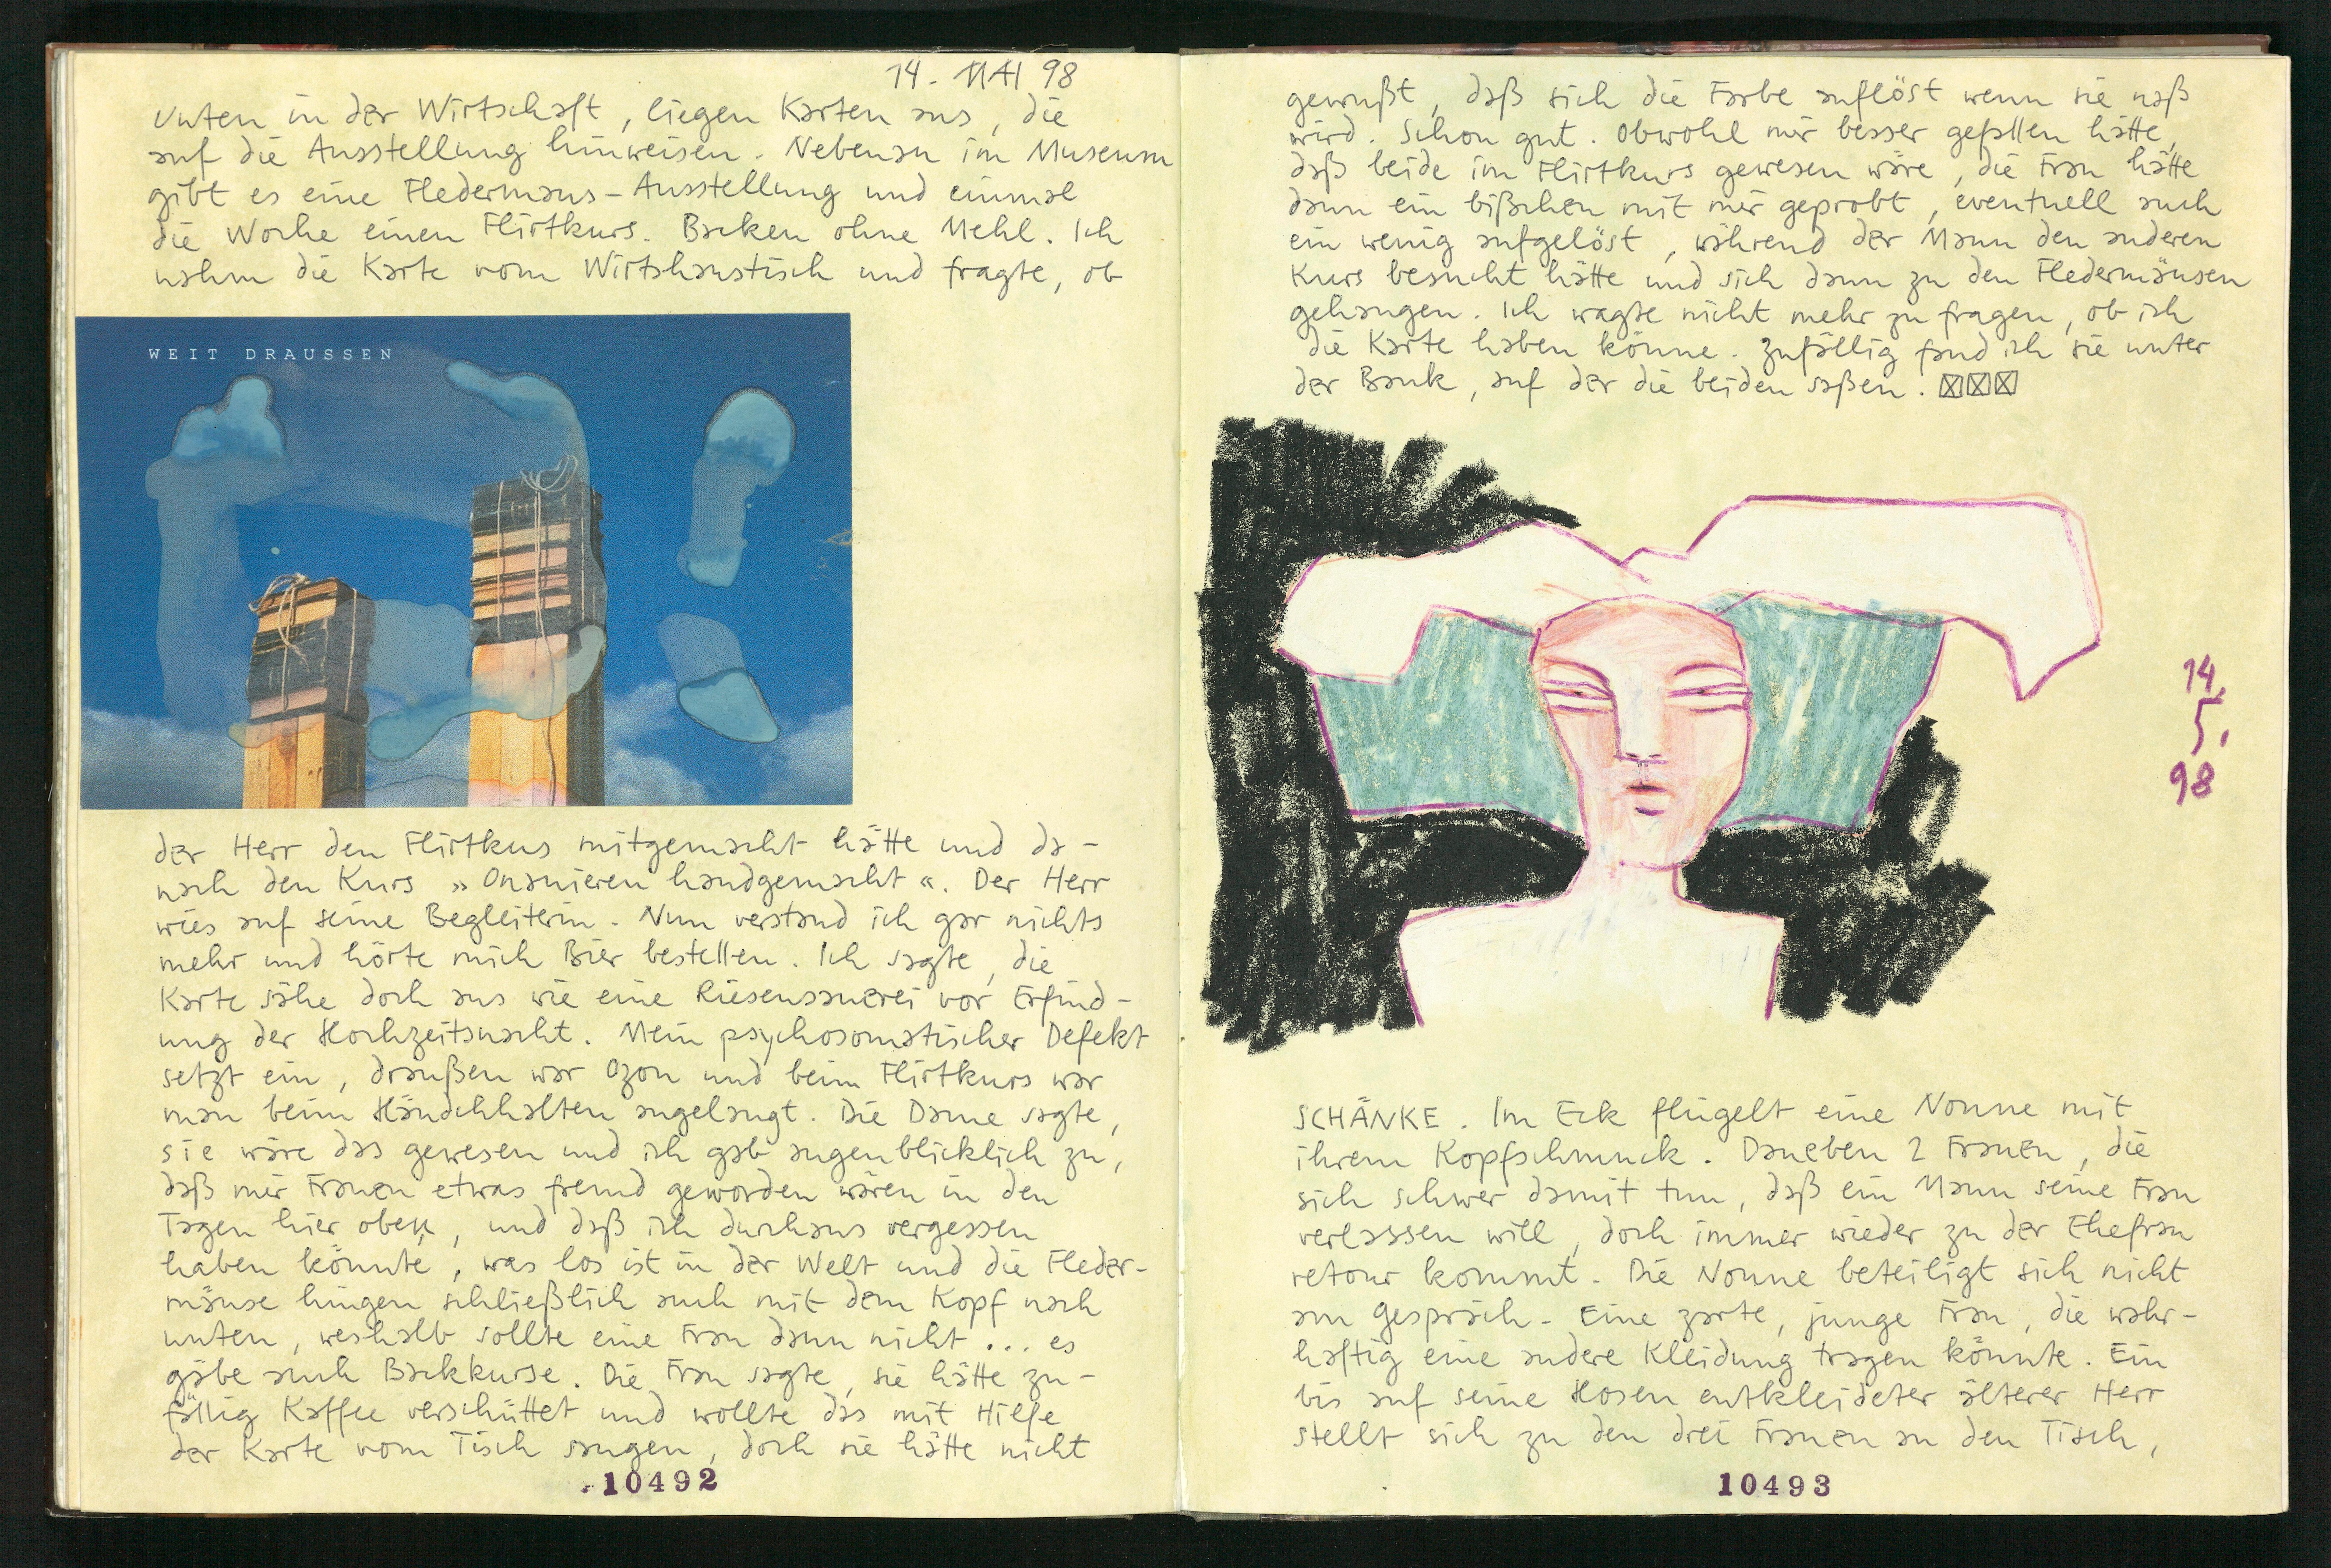 14. MAI 98
Unten in der Wirtschaft, liegen Karten aus, die
auf die Ausstellung hinweisen. Nebenan im Museum
gibt es eine Fledermaus-Ausstellung und einmal
die Woche einen Flirtkurs. Backen ohne Mehl. Ich
nahm die Karte vom Wirtshaustisch und fragte, ob
WEIT DRAUSSEN
der Herr den Flirtkus mitgemacht hätte und da-
nach den Kurs »Onanieren handgemacht«. Der Herr
wies auf seine Begleiterin. Nun verstand ich gar nichts
mehr und hörte mich Bier bestellen. Ich sagte, die
Karte sähe doch aus wie eine Riesensauerei vor Erfind-
ung der Hochzeitsnacht. Mein psychosomatischer Defekt
setzt ein, draußen war Ozon und beim Flirtkurs war
man beim Händchhalten angelangt. Die Dame sagte,
sie wäre das gewesen und ich gab augenblicklich zu,
daß mir Frauen etwas fremd geworden wären in den
Tagen hier oben, und daß ich durchaus vergessen
haben könnte, was los ist in der Welt und die Fleder-
mäuse hingen schließlich auch mit dem Kopf nach
unten, weshalb sollte eine Frau dann nicht ... es
gäbe auch Backkurse. Die Frau sagte, sie hätte zu-
fällig Kaffee verschüttet und wollte das mit Hilfe
der Karte vom Tisch saugen, doch sie hätte nicht
10492
gewußt, daß sich die Farbe auflöst wenn sie naß
wird. Schon gut. Obwohl mir besser gefallen hätte,
daß beide im Flirtkurs gewesen wäre, die Frau hätte
dann ein bißchen mit mir geprobt, eventuell auch
ein wenig aufgelöst, während der Mann den anderen
Kurs besucht hätte und sich dann zu den Fledermäusen
gehangen. Ich wagte nicht mehr zu fragen, ob ich
die Karte haben könne. Zufällig fand ich sie unter
der Bank, auf der die beiden saßen. ☒☒☒
14.
5.
98
SCHÄNKE. Im Eck flügelt eine Nonne mit
ihrem Kopfschmuck. Daneben 2 Frauen, die
sich schwer damit tun, daß ein Mann seine Frau
verlassen will, doch immer wieder zu der Ehefrau
retour kommt. Die Nonne beteiligt sich nicht
am Gespräch. Eine zarte, junge Frau, die wahr-
haftig eine andere Kleidung tragen könnte. Ein
bis auf seine Hosen entkleideter älterer Herr
stellt sich zu den drei Frauen an den Tisch,
10493